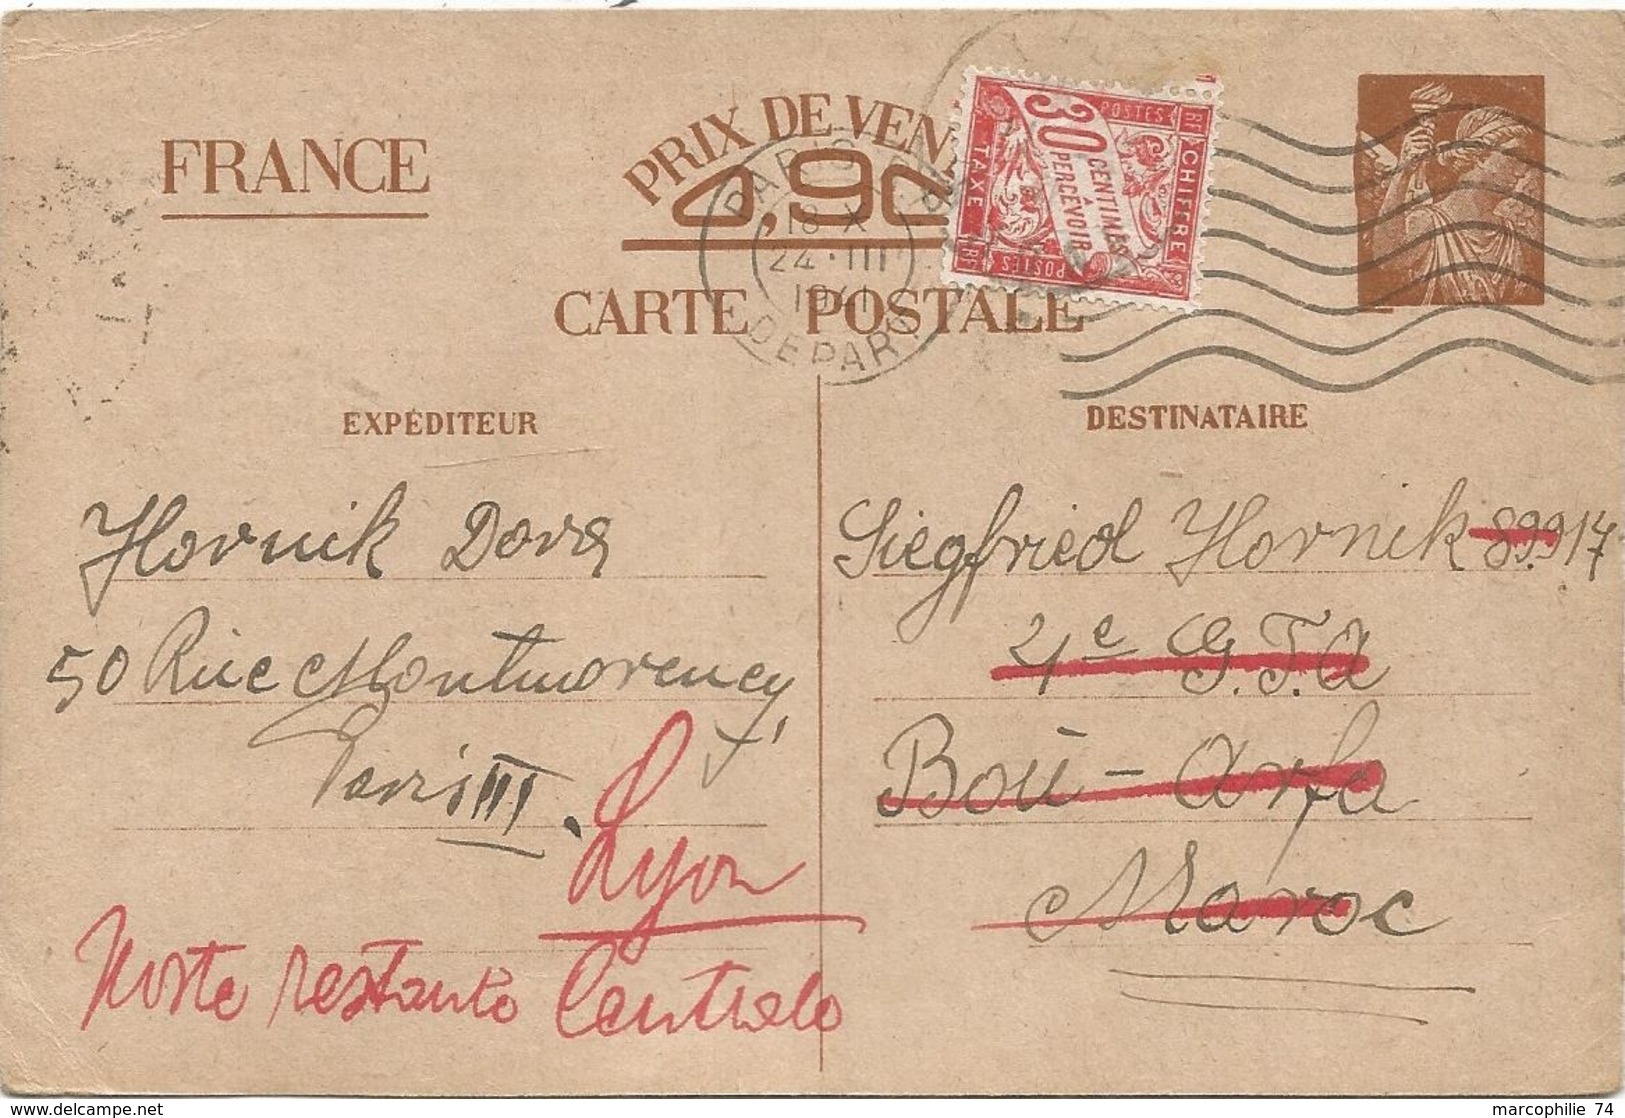 FRANCE
PRIX DE VEN
0,90
CARTE POSTALE
PARIS
18 X
24 · III
1941
DEPART
POSTES
RF
CHIFFRE
30
CENTIMES
À
PERCEVOIR
TAXE
RF
POSTES
EXPÉDITEUR
Hornik Dora
50 Rue Montmorency
Paris III
Lyon
Poste restante Centrale
DESTINATAIRE
Siegfried Hornik 89917
4e G.T.A
Boù-Arfa
Maroc
delcampe.net
marcophilie 74